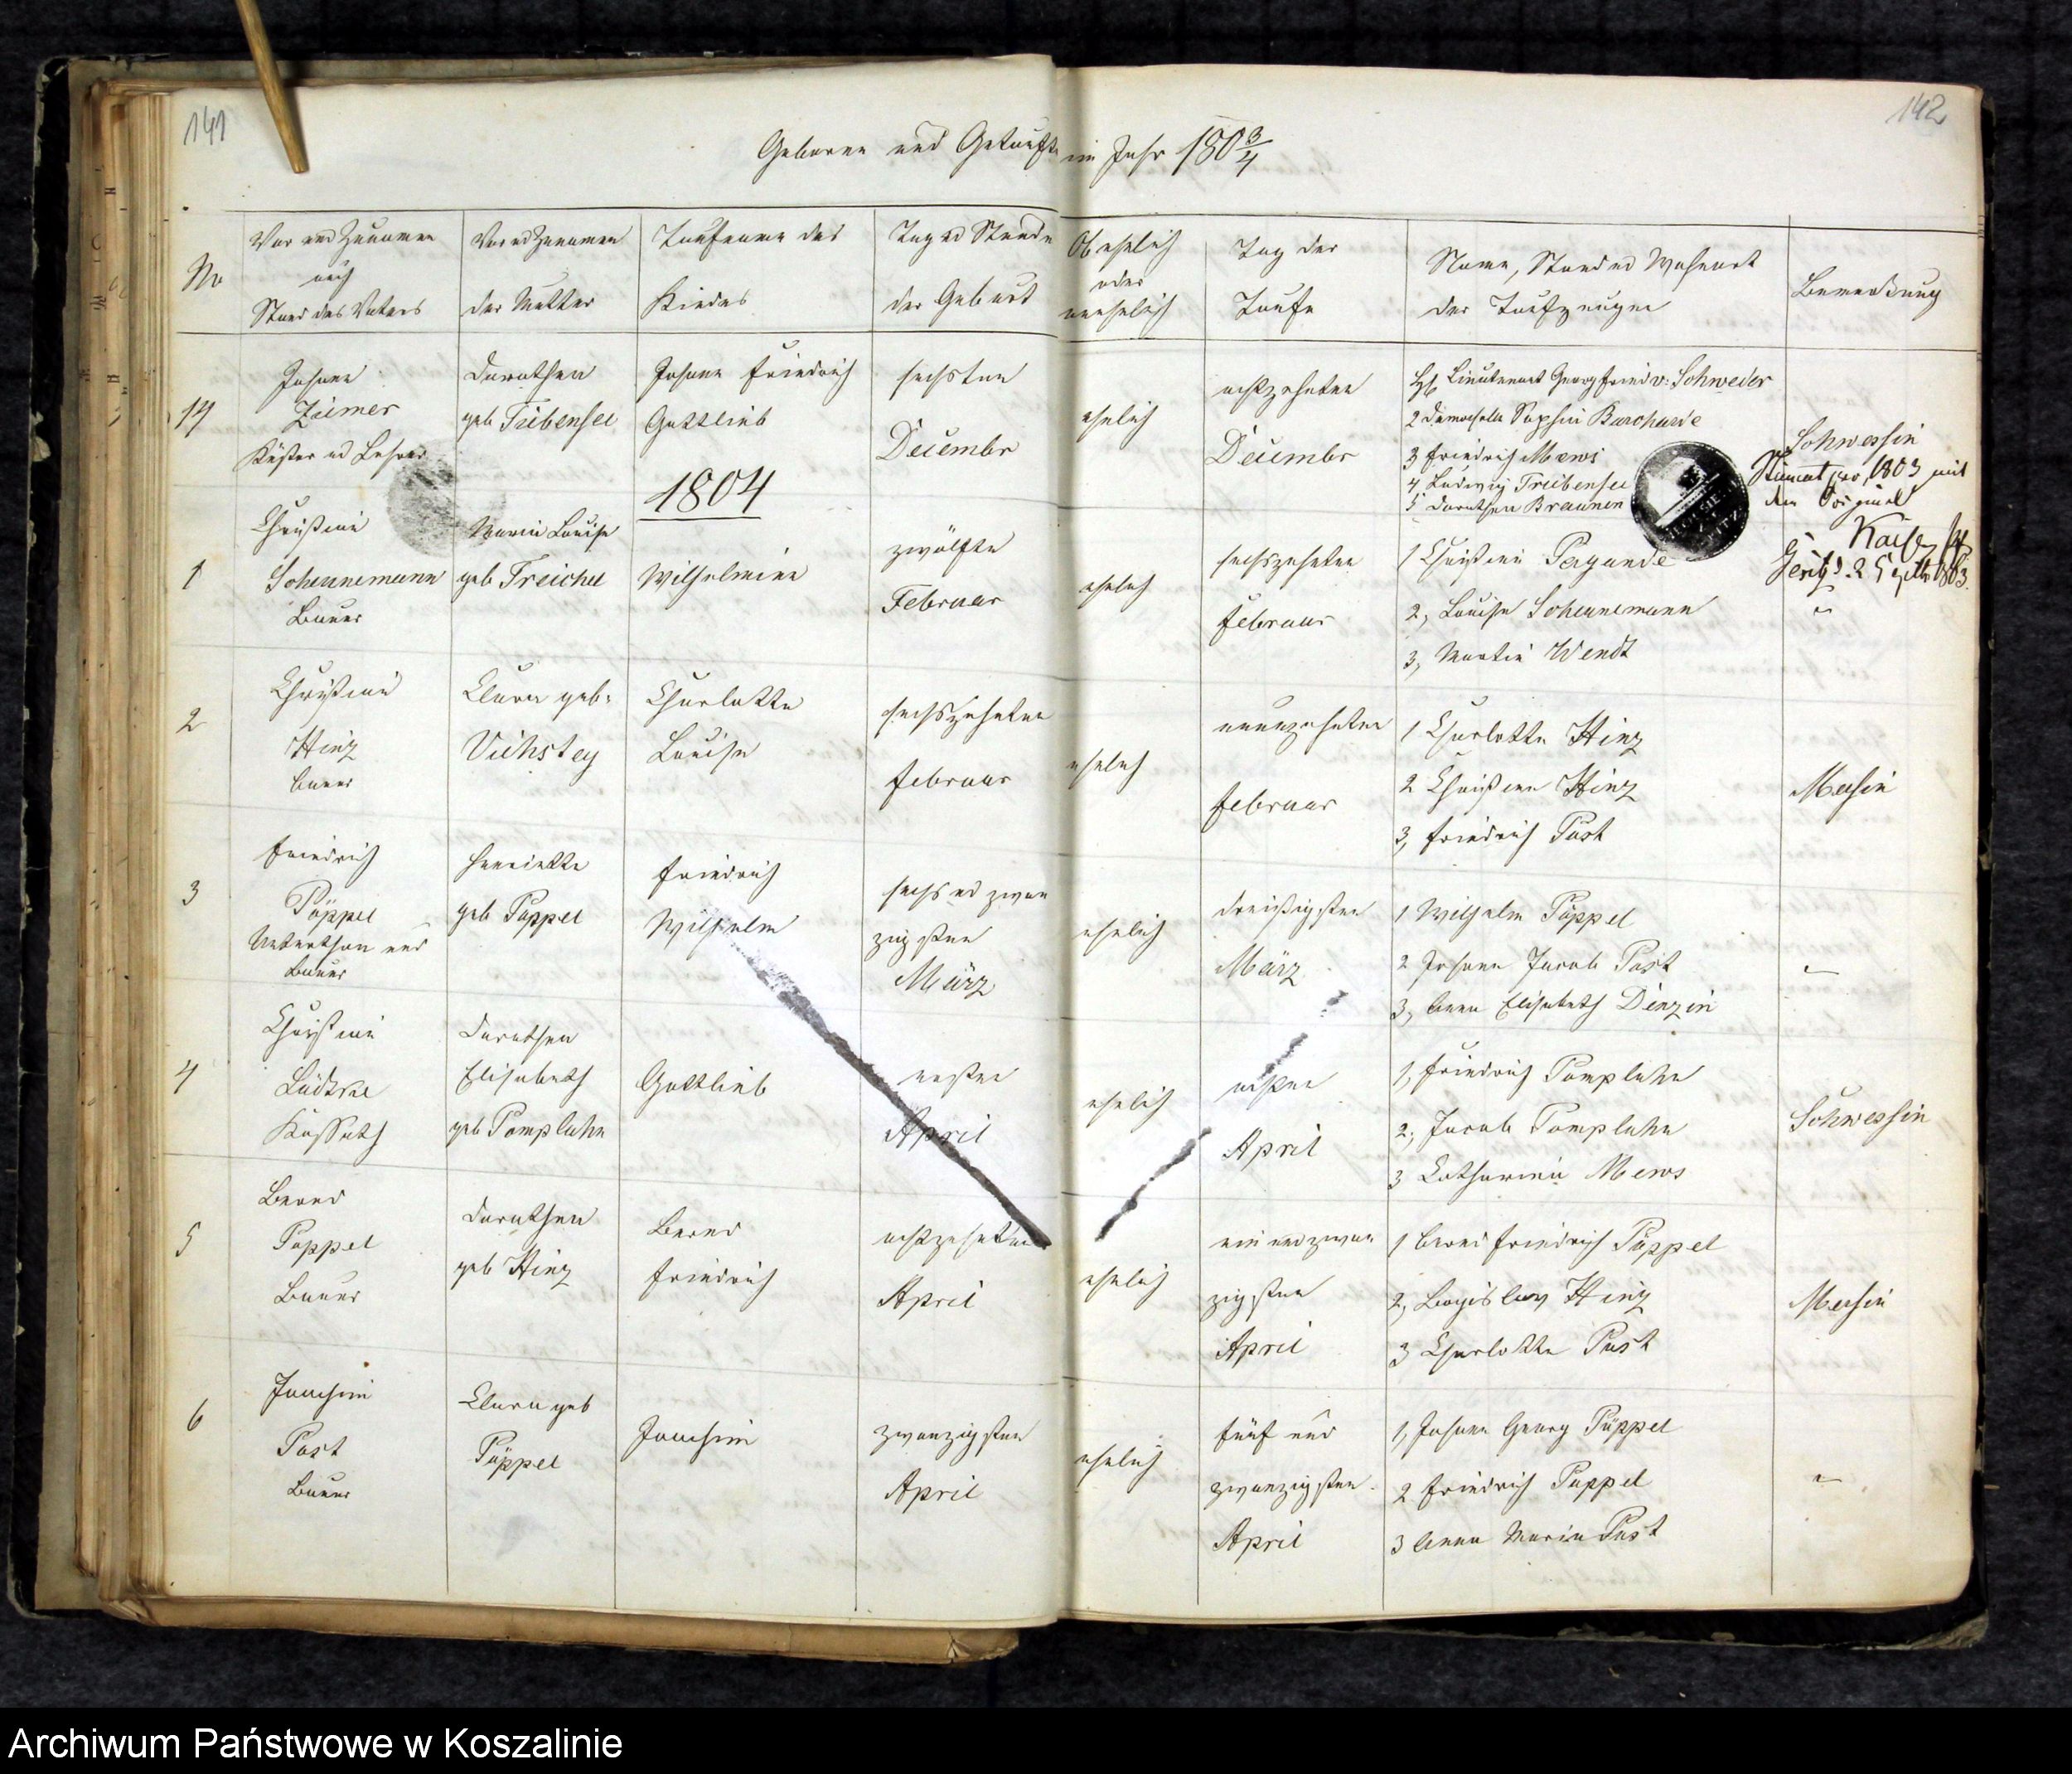 141
142
Geborne und Getaufte im Jahr 180 3/4
No
Vor und Zunamen
auch
Stand des Vaters
Vor ud Zunamen
der Mutter
Taufname des
Kindes
Tag ud Stunde
der Geburt
Ob ehelich
oder
unehelich
Tag der
Taufe
Name, Stand ud Wohnort
der Taufzeugen
Bemerkung
14
Johann
Ziemer
Küster ud Lehrer
Dorothea
geb Tribensee
Johann Friedrich
Gottlieb
sechsten
Decembr
ehelich
achtzehnten
Decembr
Lieutenant Georg Fried v. Schweder
2 Demoiselle Sophie Burchard
3 Friedrich Mews
4 Ludwig Triebensee
5 Dorothea Braunen
Schwessin
Stimmt pro 1803 mit
dem Original
1804
1
Christian
Schünemann
Bauer
Maria Louise
geb Treichel
Wilhelmine
zwölfte
Februar
ehelich
sechszehnten
Februar
1 Christian Pagunde
2, Louise Schünemann
3, Martin Wendt
"
2
Christian
Hinz
Bauer
Clara geb.
Charlotte
Louise
sechszehnten
Februar
ehelich
neunzehnten
Februar
1 Charlotte Hinz
2 Christian Hinz
3, Friedrich Post
Mersin
3
Friedrich
Päppel
Unterthan und
Bauer
Henriette
geb Päppel
Friedrich
Wilhelm
sechs ud zwan
zigsten
März
ehelich
dreißigsten
März
1 Wilhelm Päppel
2 Johann Jacob Post
3, Anna Elisabeth Dinzin
"
4
Christian
Lüdtke
Kossath
Dorothea
Elisabeth
geb Pompluhn
Gottlieb
ersten
April
ehelich
April
1, Friedrich Pompluhn
2, Jacob Pompluhn
3 Catharina Mews
Schwessin
5
Berend
Päppel
Bauer
Dorothea
geb Hinz
Berend
Friedrich
achtzehnten
April
ehelich
ein und zwan
zigsten
April
1 Berend Friedrich Päppel
2, Bogislav Hinz
3 Charlotte Post
Mersin
6
Joachim
Post
Bauer
Clara geb
Päppel
Joachim
zwanzigsten
April
ehelich
fünf und
zwanzigsten
April
1, Johann Georg Päppel
2 Friedrich Päppel
3 Anna Maria Post
"
Archiwum Państwowe w Koszalinie